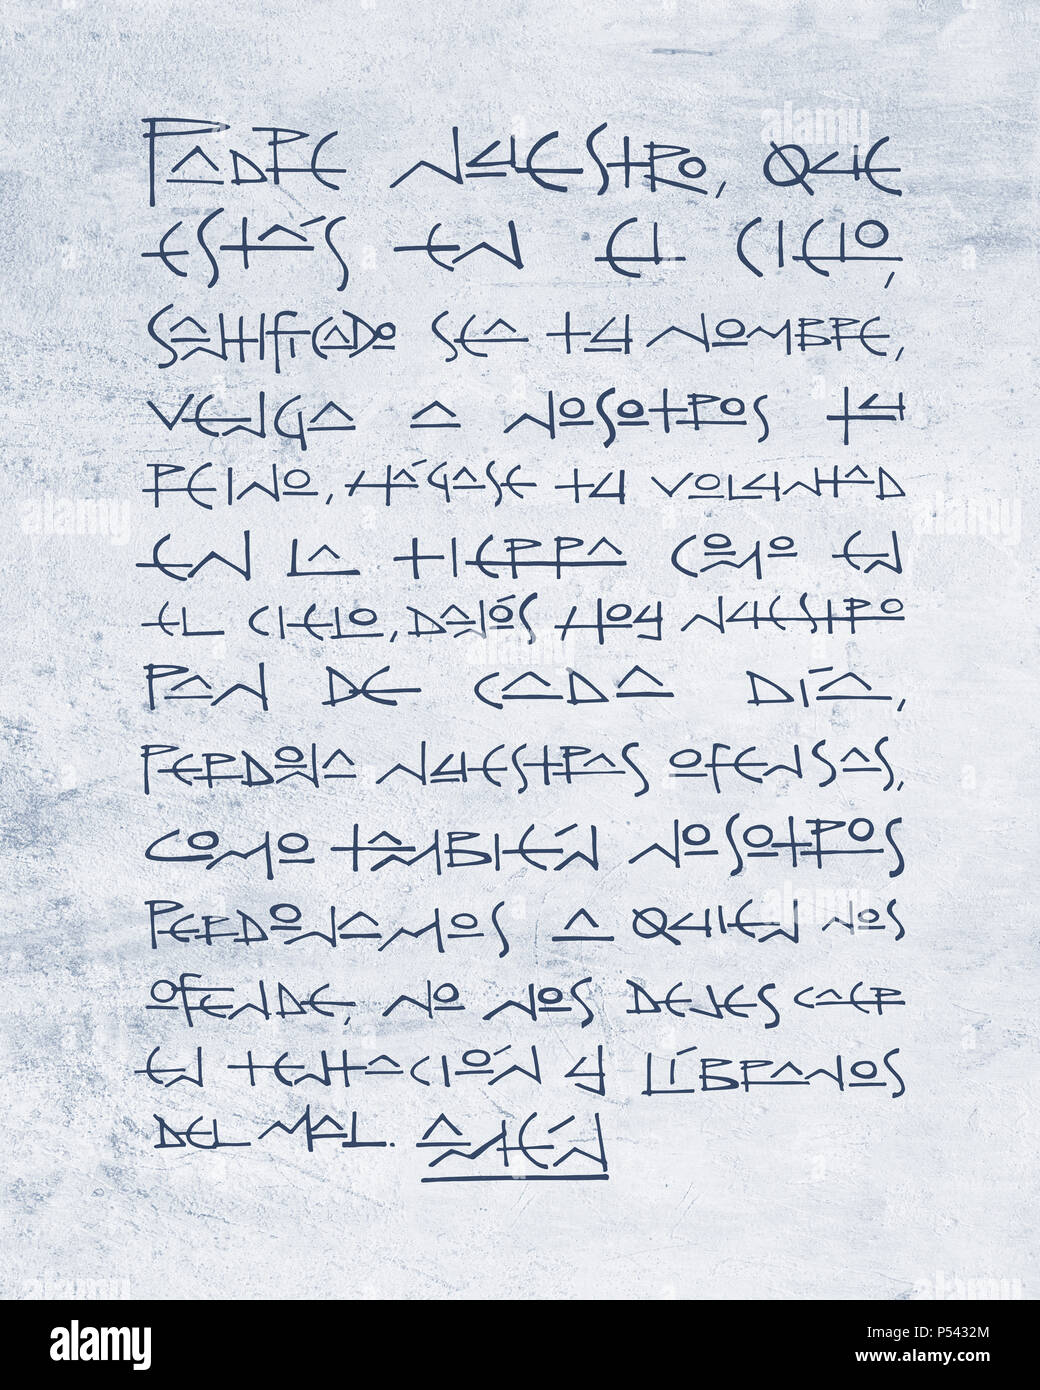 PADRE NUESTRO, QUE
ESTÁS EN EL CIELO,
SANTIFICADO SEA TU NOMBRE,
VENGA A NOSOTROS TU
REINO, HÁGASE TU VOLUNTAD
EN LA TIERRA COMO EN
EL CIELO, DANÓS HOY NUESTRO
PAN DE CADA DÍA,
PERDONA NUESTRAS OFENSAS,
COMO TAMBIÉN NOSOTROS
PERDONAMOS A QUIEN NOS
OFENDE, NO NOS DEJES CAER
EN TENTACIÓN Y LÍBRANOS
DEL MAL. AMÉN
alamy
Image ID: P5432M
www.alamy.com